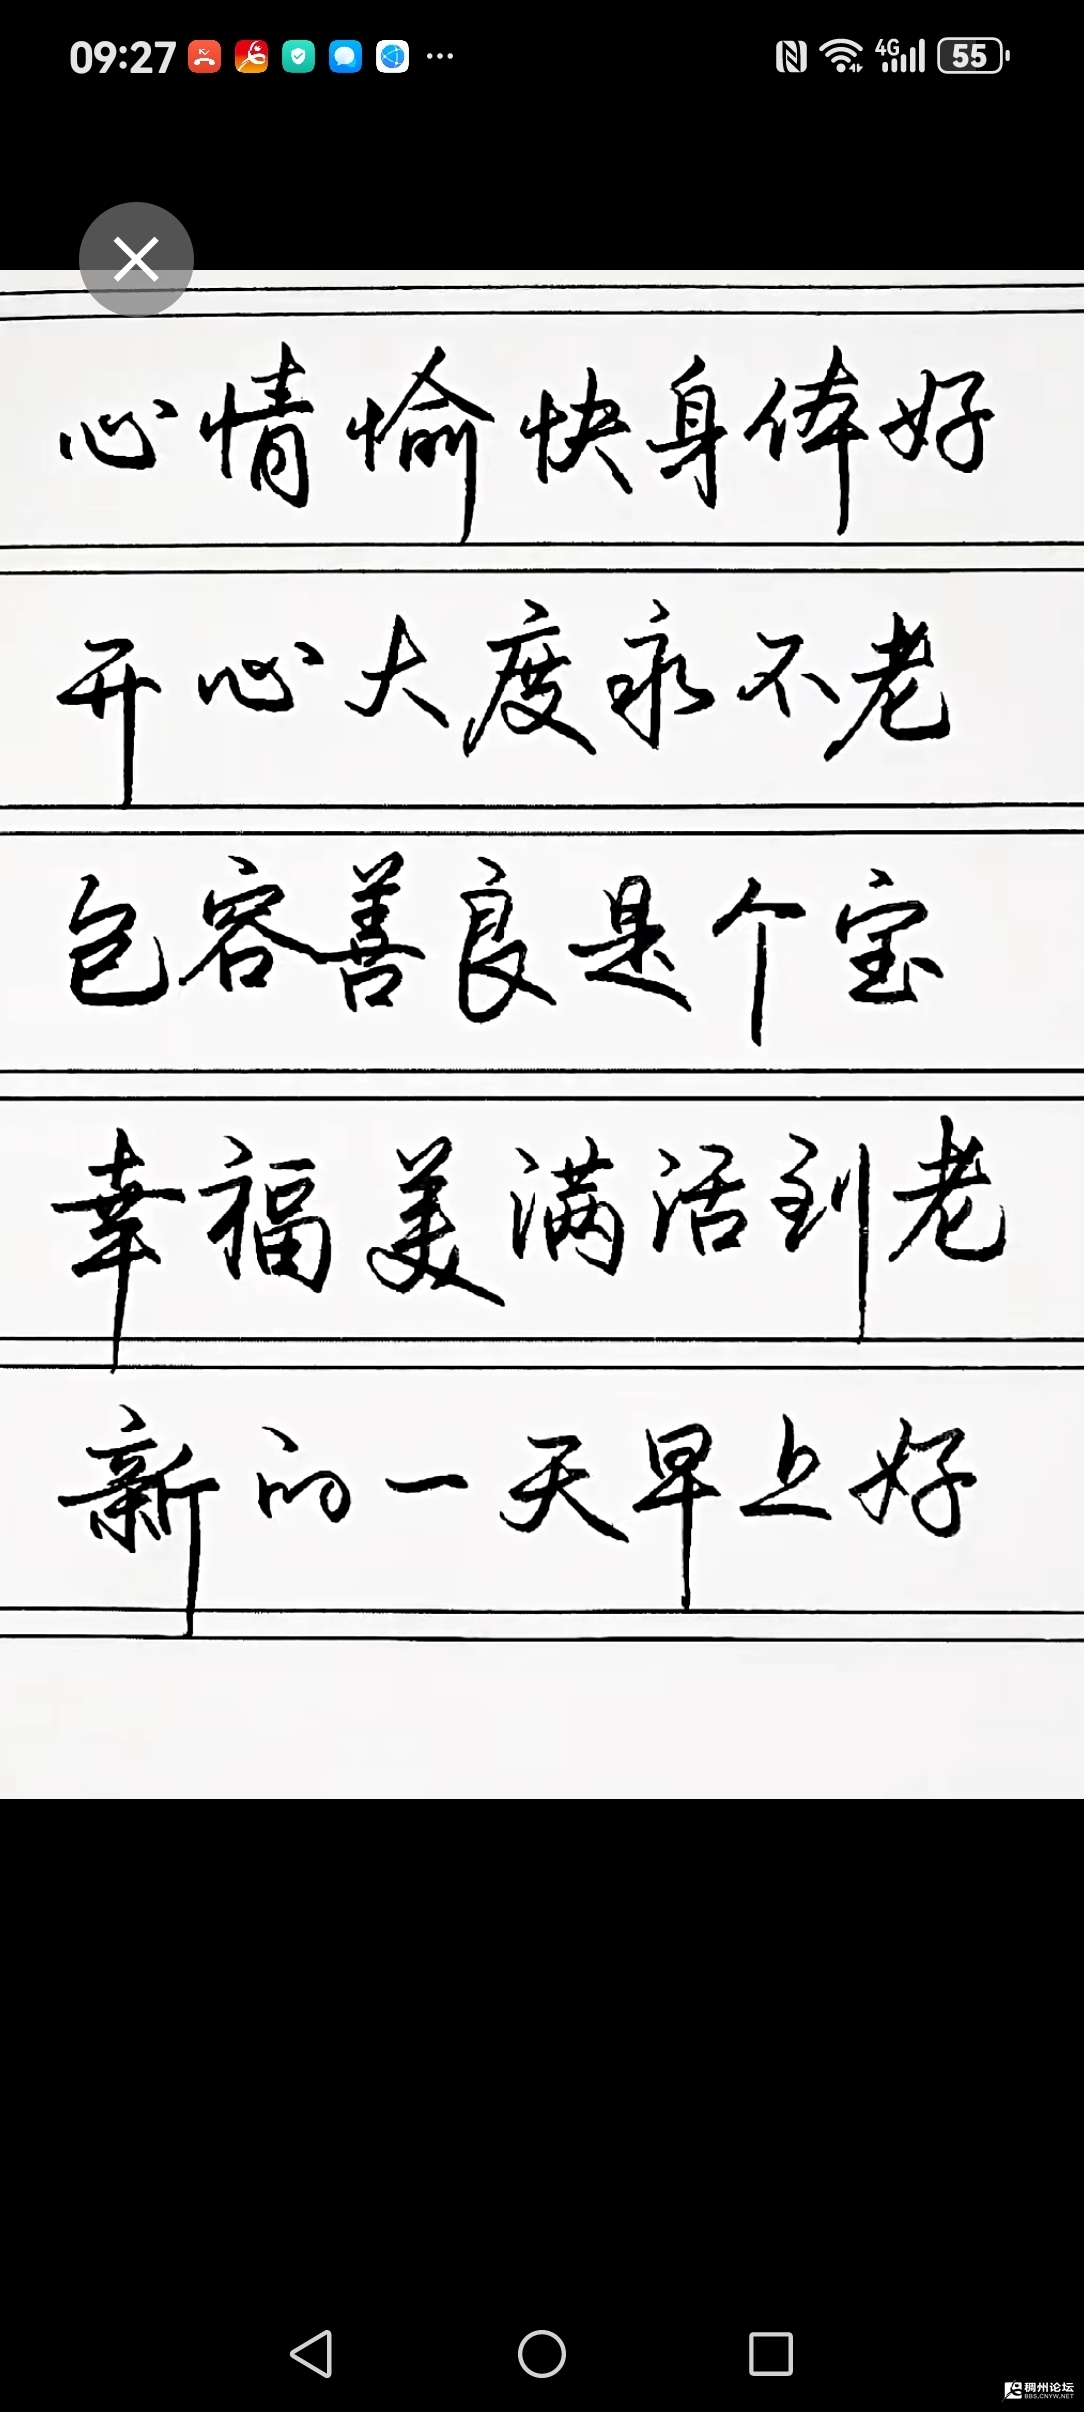 09:27 4G 55
心情愉快身体好
开心大度永不老
包容善良是个宝
幸福美满活到老
新的一天早上好
稠州论坛
BBS.CNYW.NET